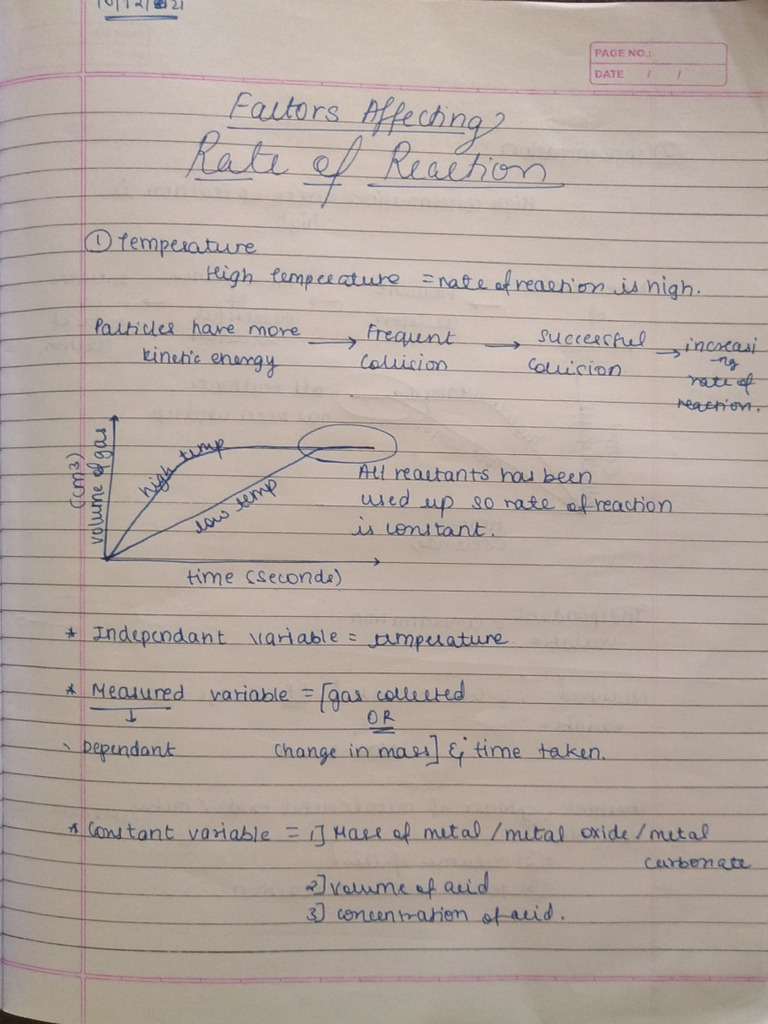 10/12/21
PAGE NO.:
DATE / /
Factors Affecting
Rate of Reaction
① Temperature
High temperature = rate of reaction is high.
Particles have more → Frequent → successful → increasi
kinetic energy collision collision ng
rate of
reaction.
(cm3)
volume of gas
high temp
low temp
All reactants has been
used up so rate of reaction
is constant.
time (seconds)
* Independant variable = temperature
* Measured variable = [gas collected
↓ OR
Dependant change in mass] & time taken.
* Constant variable = 1] Mass of metal / metal oxide / metal
carbonate
2] volume of acid
3] concentration of acid.